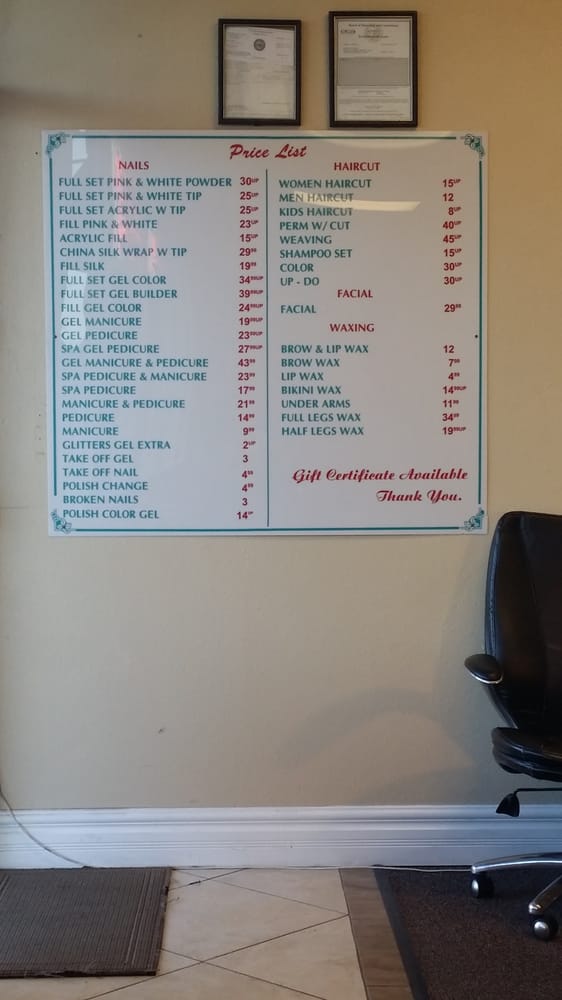 Price List
NAILS
FULL SET PINK & WHITE POWDER 30UP
FULL SET PINK & WHITE TIP 25UP
FULL SET ACRYLIC W TIP 25UP
FILL PINK & WHITE 23UP
ACRYLIC FILL 15UP
CHINA SILK WRAP W TIP 2999
FILL SILK 1999
FULL SET GEL COLOR 3499UP
FULL SET GEL BUILDER 3999UP
FILL GEL COLOR 2499UP
GEL MANICURE 1999UP
GEL PEDICURE 2399UP
SPA GEL PEDICURE 2799UP
GEL MANICURE & PEDICURE 4399
SPA PEDICURE & MANICURE 2399
SPA PEDICURE 1799
MANICURE & PEDICURE 2199
PEDICURE 1499
MANICURE 999
GLITTERS GEL EXTRA 2UP
TAKE OFF GEL 3
TAKE OFF NAIL 499
POLISH CHANGE 499
BROKEN NAILS 3
POLISH COLOR GEL 14UP
HAIRCUT
WOMEN HAIRCUT 15UP
MEN HAIRCUT 12
KIDS HAIRCUT 8UP
PERM W/ CUT 40UP
WEAVING 45UP
SHAMPOO SET 15UP
COLOR 30UP
UP - DO 30UP
FACIAL
FACIAL 2999
WAXING
BROW & LIP WAX 12
BROW WAX 799
LIP WAX 499
BIKINI WAX 1499UP
UNDER ARMS 1199
FULL LEGS WAX 3499
HALF LEGS WAX 1999UP
Gift Certificate Available
Thank You.